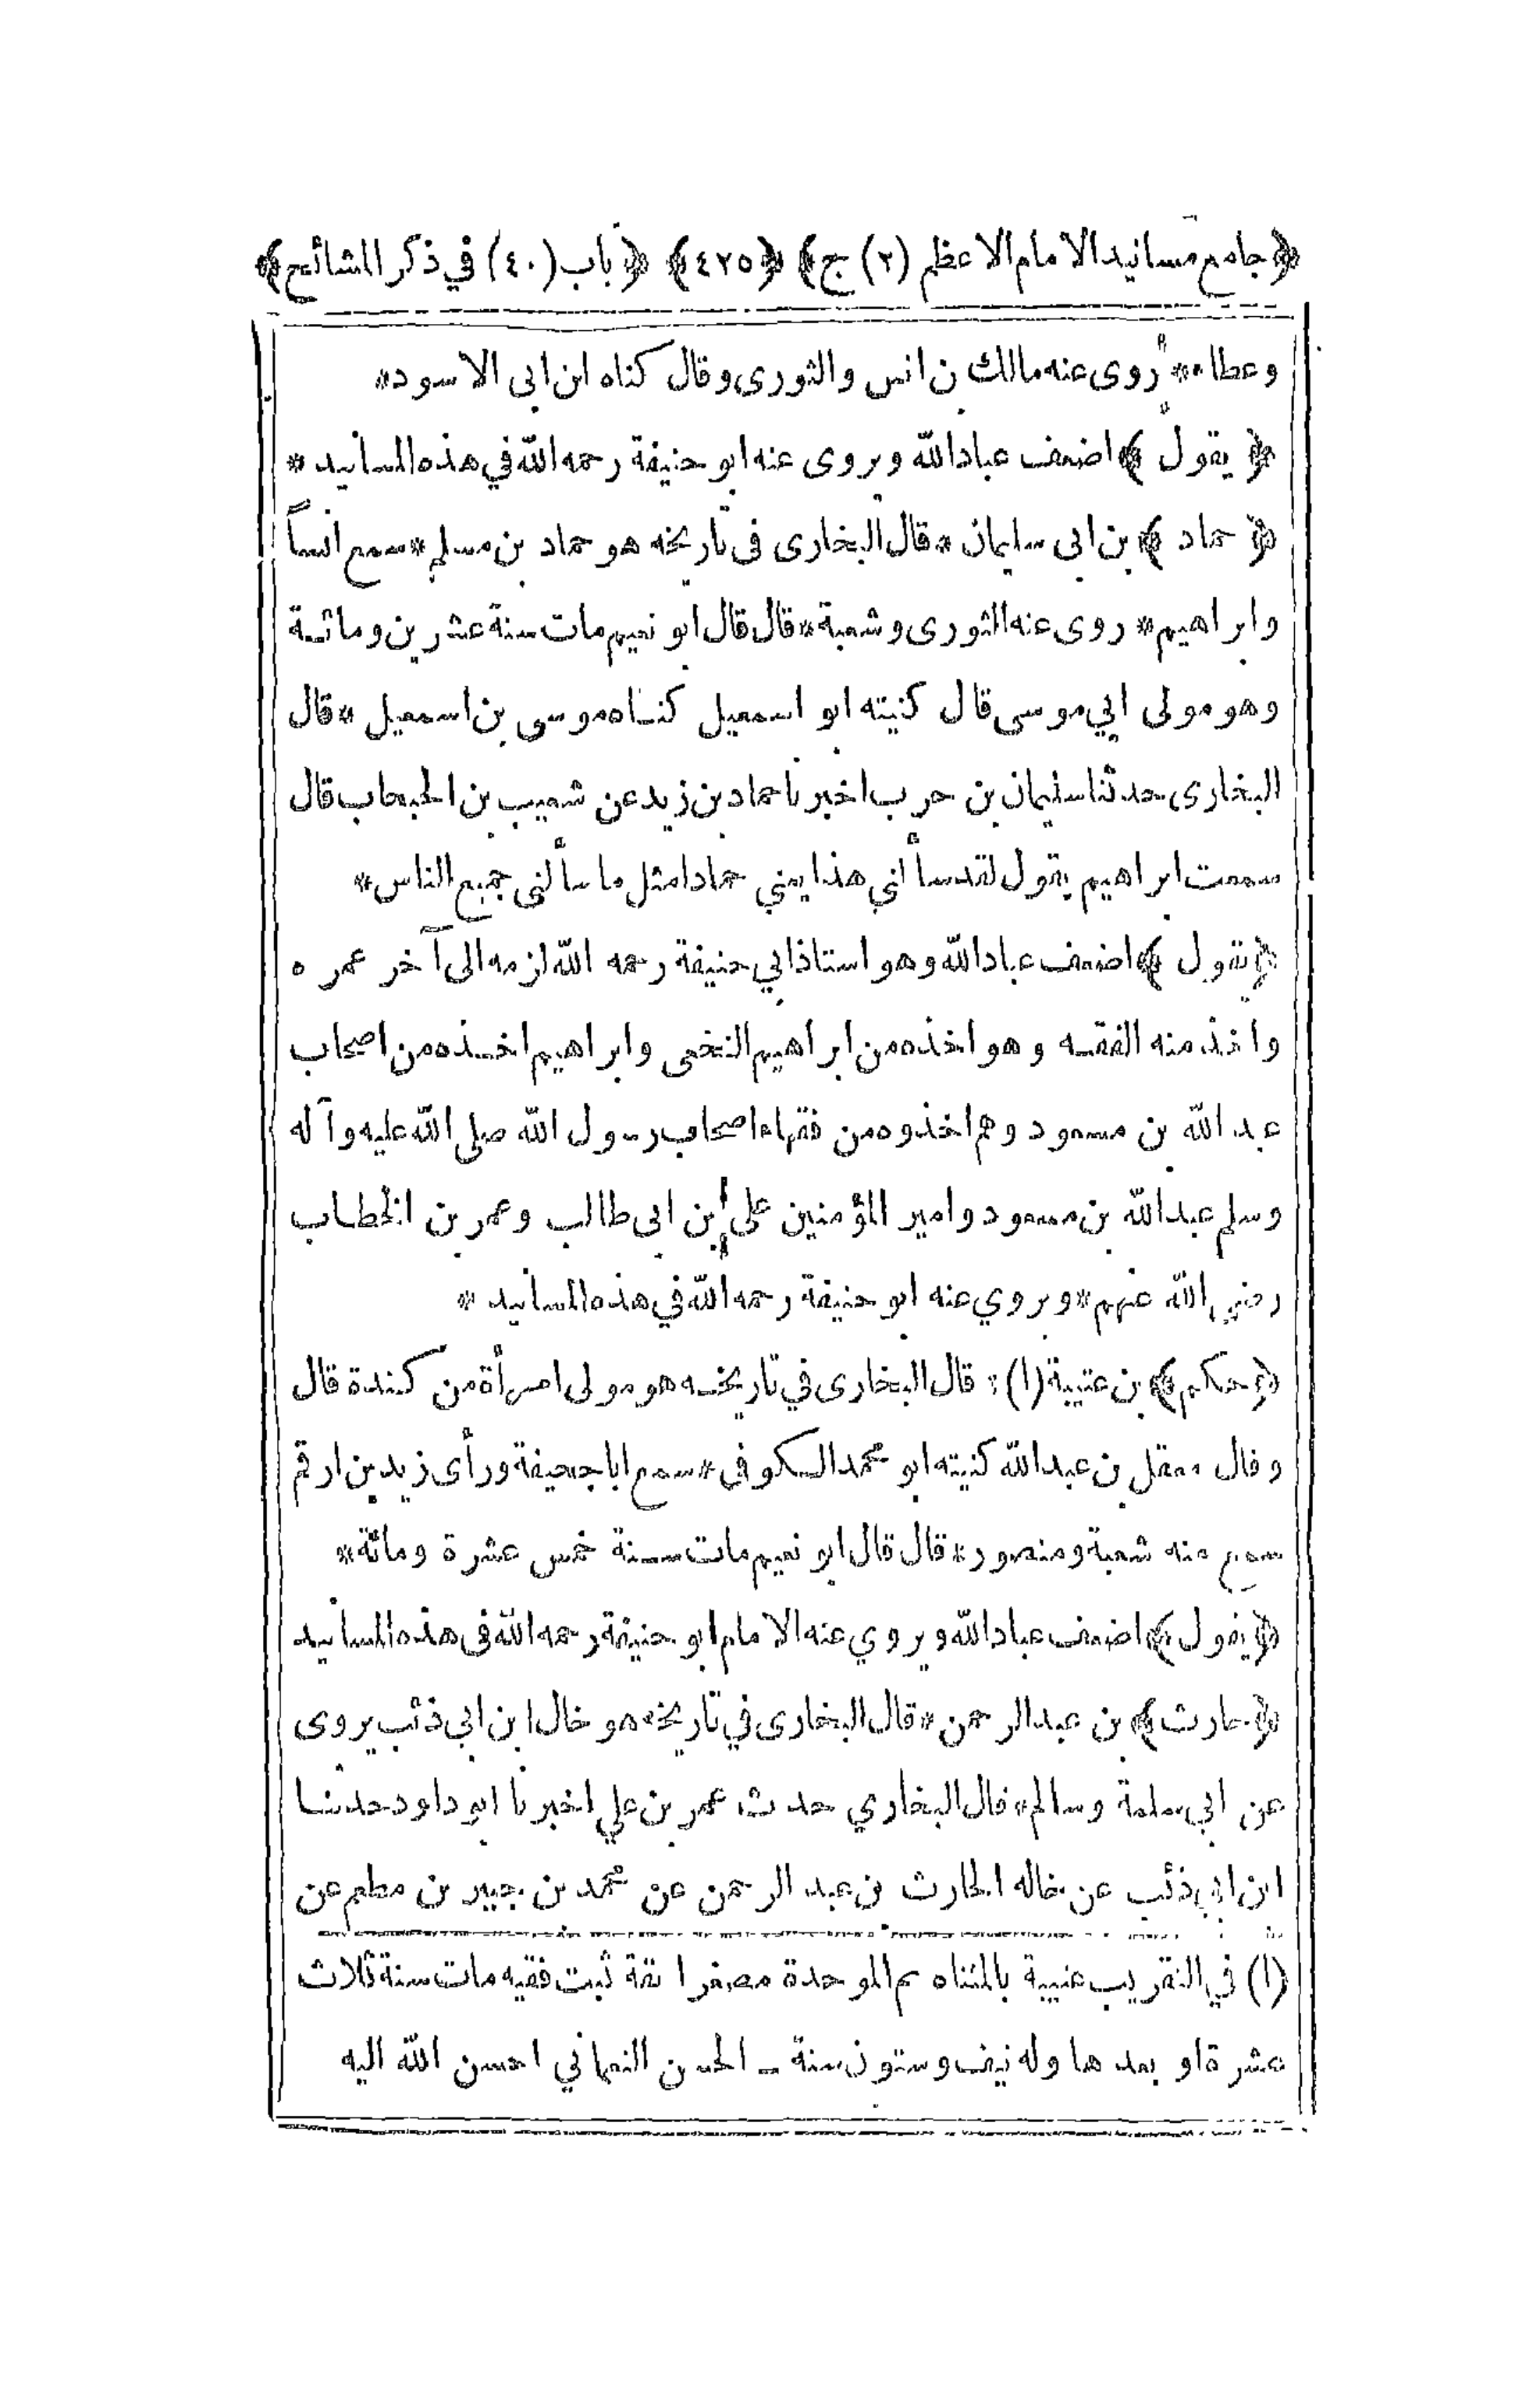 ﴿جامع مسانيد الامام الاعظم (٢) ج﴾ ﴿٤٢٥﴾ ﴿باب (٤٠) في ذكر المشائخ﴾
وعطاء * روى عنه مالك بن انس والثورى وقال كناه ابن ابى الاسود *
﴿يقول﴾ اضعف عباد الله ويروى عنه ابو حنيفة رحمه الله في هذه المسانيد *
﴿حماد﴾ بن ابى سليمان * قال البخارى فى تاريخه هو حماد بن مسلم * سمع انساً
وابراهيم * روى عنه الثورى وشعبة * قال قال ابو نعيم مات سنة عشرين ومائة
وهو مولى ابي موسى قال كنيته ابو اسمعيل كناه موسى بن اسمعيل * قال
البخارى حدثنا سليمان بن حرب اخبرنا حماد بن زيد عن شعيب بن الحبحاب قال
سمعت ابراهيم يقول لقد سألني هذا يعني حمادا مثل ما سألنى جميع الناس *
﴿يقول﴾ اضعف عباد الله وهو استاذ ابي حنيفة رحمه الله لزمه الى آخر عمره
واخذ منه الفقه وهو اخذه من ابراهيم النخعى وابراهيم اخذه من اصحاب
عبد الله بن مسعود وهم اخذوه من فقهاء اصحاب رسول الله صلى الله عليه وآله
وسلم عبد الله بن مسعود وامير المؤمنين على بن ابى طالب وعمر بن الخطاب
رضي الله عنهم * ويروي عنه ابو حنيفة رحمه الله في هذه المسانيد *
﴿حكم﴾ بن عتيبة (١) * قال البخارى في تاريخه هو مولى امرأة من كندة قال
وقال معقل بن عبد الله كنيته ابو محمد الكوفى * سمع ابا جحيفة ورأى زيد بن ارقم
سمع منه شعبة ومنصور * قال قال ابو نعيم مات سنة خمس عشرة ومائة *
﴿يقول﴾ اضعف عباد الله ويروي عنه الامام ابو حنيفة رحمه الله فى هذه المسانيد
﴿حارث﴾ بن عبد الرحمن * قال البخارى في تاريخه هو خال ابن ابى ذئب يروى
عن ابي سلمة وسالم * قال البخاري حدث عمر بن علي اخبرنا ابو داود حدثنا
ابن ابي ذئب عن خاله الحارث بن عبد الرحمن عن محمد بن جبير بن مطعم عن
(١) في التقريب عتيبة بالمثناه ثم الموحدة مصغرا ثقة ثبت فقيه مات سنة ثلاث
عشرة او بعدها وله نيف وستون سنة – الحسن النعماني احسن الله اليه